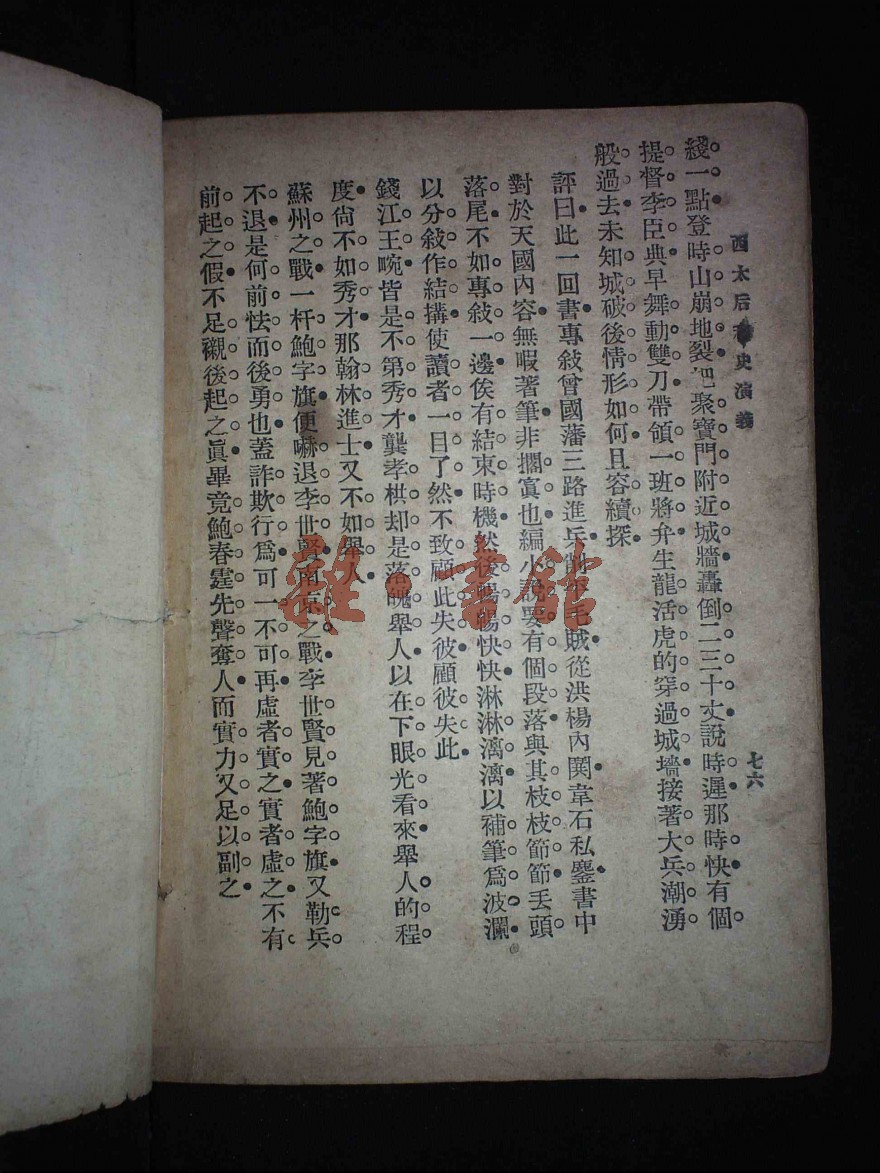 西太后 史演義
七六
綫一點登時山崩地裂把聚寶門附近城牆轟倒二三十丈說時遲那時快有個
提督李臣典早舞動雙刀帶領一班將弁生龍活虎的穿過城墻接著大兵潮湧
般過去未知城破後情形如何且容續探
評曰此一回書專敍曾國藩三路進兵 平毛賊從洪楊內閧韋石私鏖書中
對於天國內容無暇著筆非擱寘也編小說要有個段落與其枝枝節節丟頭
落尾不如專敍一邊俟有結束時機然後暢暢快快淋淋漓漓以補筆爲波瀾
以分敍作結搆使讀者一目了然不致顧此失彼顧彼失此
錢江王畹皆是不第秀才龔孝栱却是落魄舉人以在下眼光看來舉人的程
度尙不如秀才那翰林進士又不如舉人
蘇州之戰一杆鮑字旗便嚇退李世賢南京之戰李世賢見著鮑字旗又勒兵
不退是何前怯而後勇也蓋詐欺行爲可一不可再虛者實之實者虛之不有
前起之假不足襯後起之眞畢竟鮑春霆先聲奪人而實力又足以副之
雜·書館